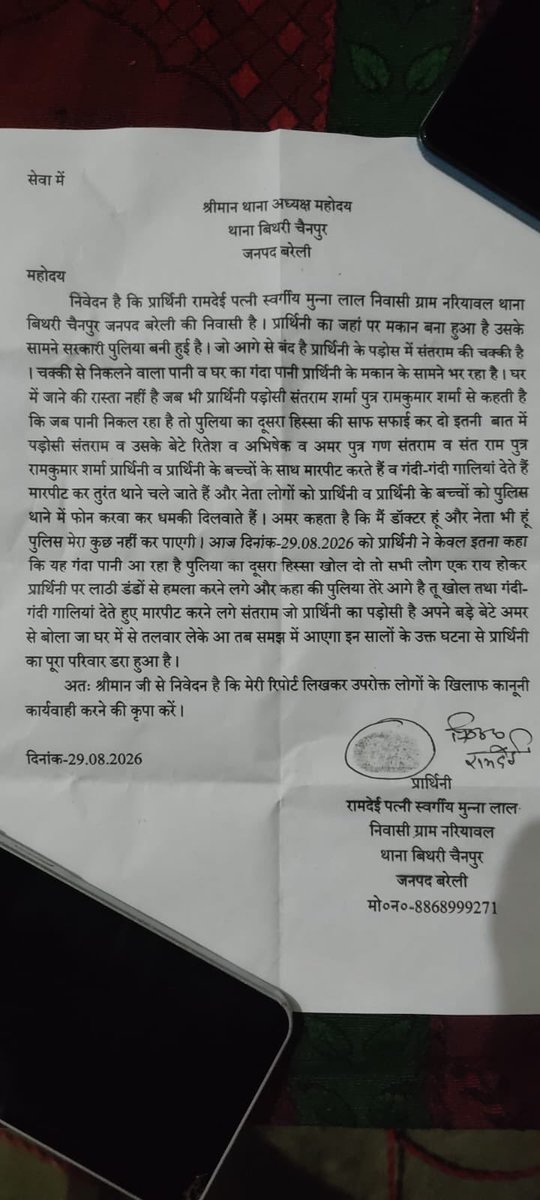 सेवा में
श्रीमान थाना अध्यक्ष महोदय
थाना बिथरी चैनपुर
जनपद बरेली
महोदय
निवेदन है कि प्रार्थिनी रामदेई पत्नी स्वर्गीय मुन्ना लाल निवासी ग्राम नरियावल थाना
बिथरी चैनपुर जनपद बरेली की निवासी है। प्रार्थिनी का जहां पर मकान बना हुआ है उसके
सामने सरकारी पुलिया बनी हुई है। जो आगे से बंद है प्रार्थिनी के पड़ोस में संतराम की चक्की है
। चक्की से निकलने वाला पानी व घर का गंदा पानी प्रार्थिनी के मकान के सामने भर रहा है। घर
में जाने की रास्ता नहीं है जब भी प्रार्थिनी पड़ोसी संतराम शर्मा पुत्र रामकुमार शर्मा से कहती है
कि जब पानी निकल रहा है तो पुलिया का दूसरा हिस्सा की साफ सफाई कर दो इतनी बात में
पड़ोसी संतराम व उसके बेटे रितेश व अभिषेक व अमर पुत्र गण संतराम व संत राम पुत्र
रामकुमार शर्मा प्रार्थिनी व प्रार्थिनी के बच्चों के साथ मारपीट करते हैं व गंदी-गंदी गालियां देते हैं
मारपीट कर तुरंत थाने चले जाते हैं और नेता लोगों को प्रार्थिनी व प्रार्थिनी के बच्चों को पुलिस
थाने में फोन करवा कर धमकी दिलवाते हैं। अमर कहता है कि मैं डॉक्टर हूं और नेता भी हूं
पुलिस मेरा कुछ नहीं कर पाएगी। आज दिनांक-29.08.2026 को प्रार्थिनी ने केवल इतना कहा
कि यह गंदा पानी आ रहा है पुलिया का दूसरा हिस्सा खोल दो तो सभी लोग एक राय होकर
प्रार्थिनी पर लाठी डंडों से हमला करने लगे और कहा की पुलिया तेरे आगे है तू खोल तथा गंदी-
गंदी गालियां देते हुए मारपीट करने लगे संतराम जो प्रार्थिनी का पड़ोसी है अपने बड़े बेटे अमर
से बोला जा घर में से तलवार लेके आ तब समझ में आएगा इन सालों के उक्त घटना से प्रार्थिनी
का पूरा परिवार डरा हुआ है।
अतः श्रीमान जी से निवेदन है कि मेरी रिपोर्ट लिखकर उपरोक्त लोगों के खिलाफ कानूनी
कार्यवाही करने की कृपा करें।
दिनांक-29.08.2026
प्रार्थिनी
रामदेई पत्नी स्वर्गीय मुन्ना लाल
निवासी ग्राम नरियावल
थाना बिथरी चैनपुर
जनपद बरेली
मो०न०-8868999271